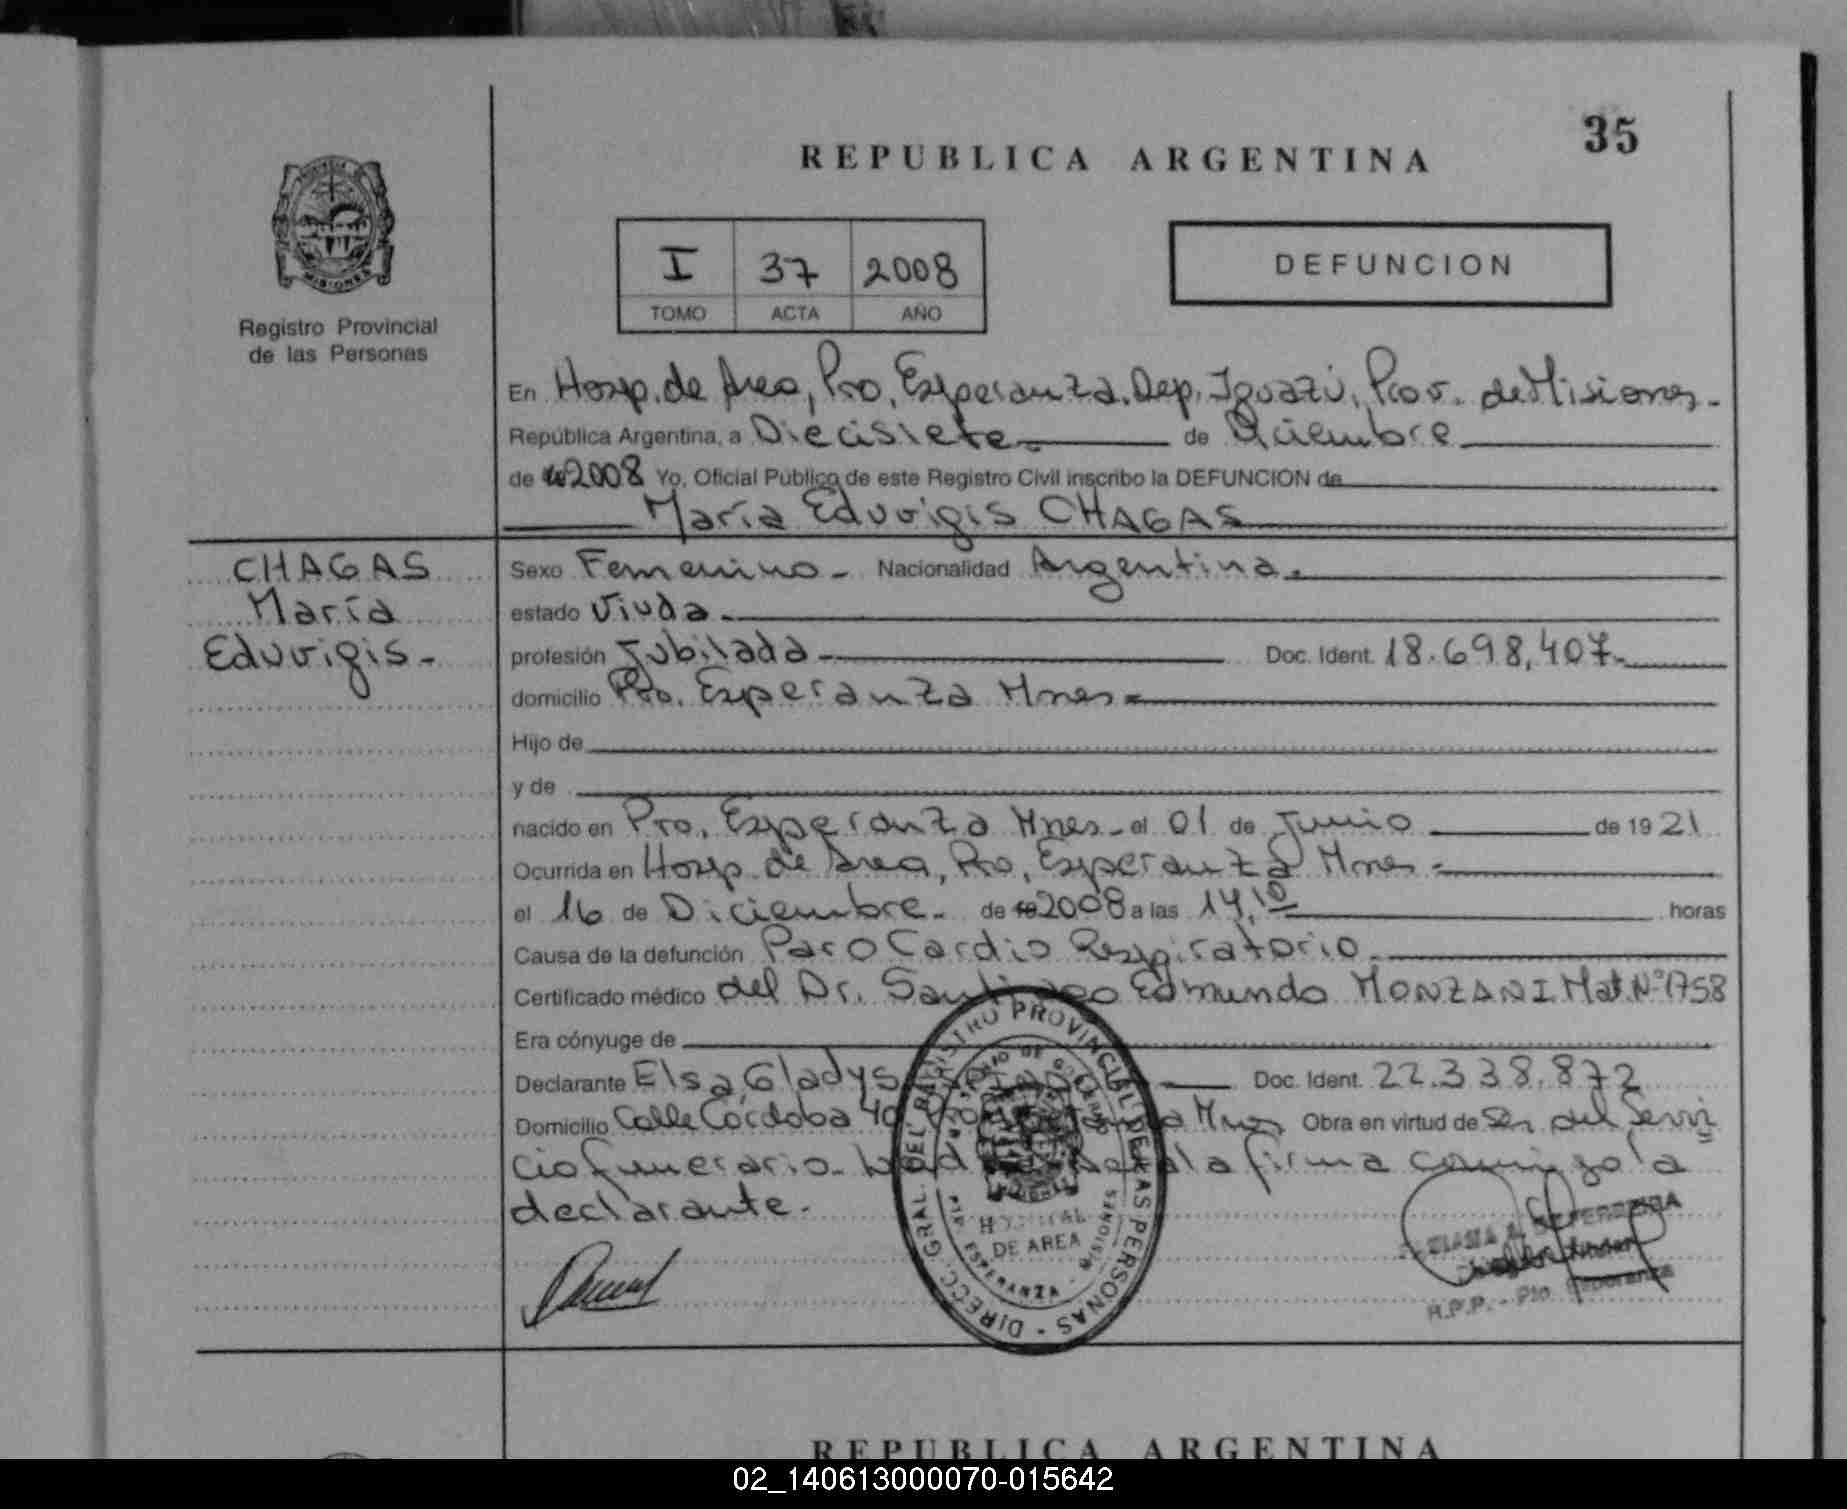 35
REPUBLICA ARGENTINA
I 37 2008
TOMO ACTA AÑO
DEFUNCION
MISIONES
Registro Provincial
de las Personas
En Hosp. de Area, Pto. Esperanza. Dep. Iguazú, Prov. de Misiones.-
República Argentina, a Diecisiete.- de Diciembre
de 2008 Yo, Oficial Público de este Registro Civil inscribo la DEFUNCION de
María Eduvigis CHAGAS
CHAGAS
María
Eduvigis.-
Sexo Femenino.- Nacionalidad Argentina.
estado Viuda.-
profesión Jubilada.- Doc. Ident. 18.698,407.-
domicilio Pto. Esperanza Mnes.-
Hijo de
y de
nacido en Pto. Esperanza Mnes.- el 01 de Junio de 1921
Ocurrida en Hosp. de Area, Pto. Esperanza Mnes.-
el 16 de Diciembre.- de 2008 a las 14,10 horas
Causa de la defunción Paro Cardio Respiratorio.
Certificado médico del Dr. Santiago Edmundo MONZANI. Mat. Nº 1758
Era cónyuge de
Declarante Elsa Gladys Doc. Ident. 22.338.872
Domicilio Calle Córdoba Mnes Obra en virtud de Ser del Servi
cio funerario.- la firma conmigo la
declarante.-
DIRECC. GRAL. DEL REGISTRO PROVINCIAL DE LAS PERSONAS
HOSPITAL
DE AREA
ESPERANZA - MISIONES
R.P.P. - Pto. Esperanza
REPUBLICA ARGENTINA
02_140613000070-015642